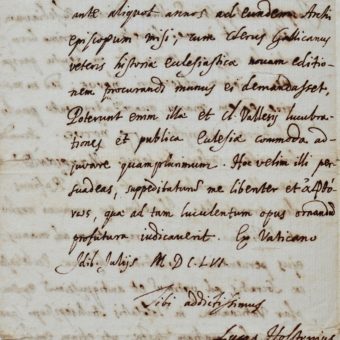 ante aliquot annos ad eundem Archi
Episcopum misi, cum Clerus Gallicanus
veteris historiæ Eclesiasticæ novam editio
nem procurandi munus ei demandasset,
Poterunt enim illa et Cl. Vallesij lucubra
tiones et publica Eclesiæ commoda ad
iuvare quamplurimum. Hoc velim illi per
suadeas, suppeditaturum me libenter et ἀφθό
νως, quæ ad tam luculentum opus ornandum
profutura iudicaverit. Ex Vaticano
Idib. Julijs M D C LVI
Tibi addictissimus
Lucas Holstenius